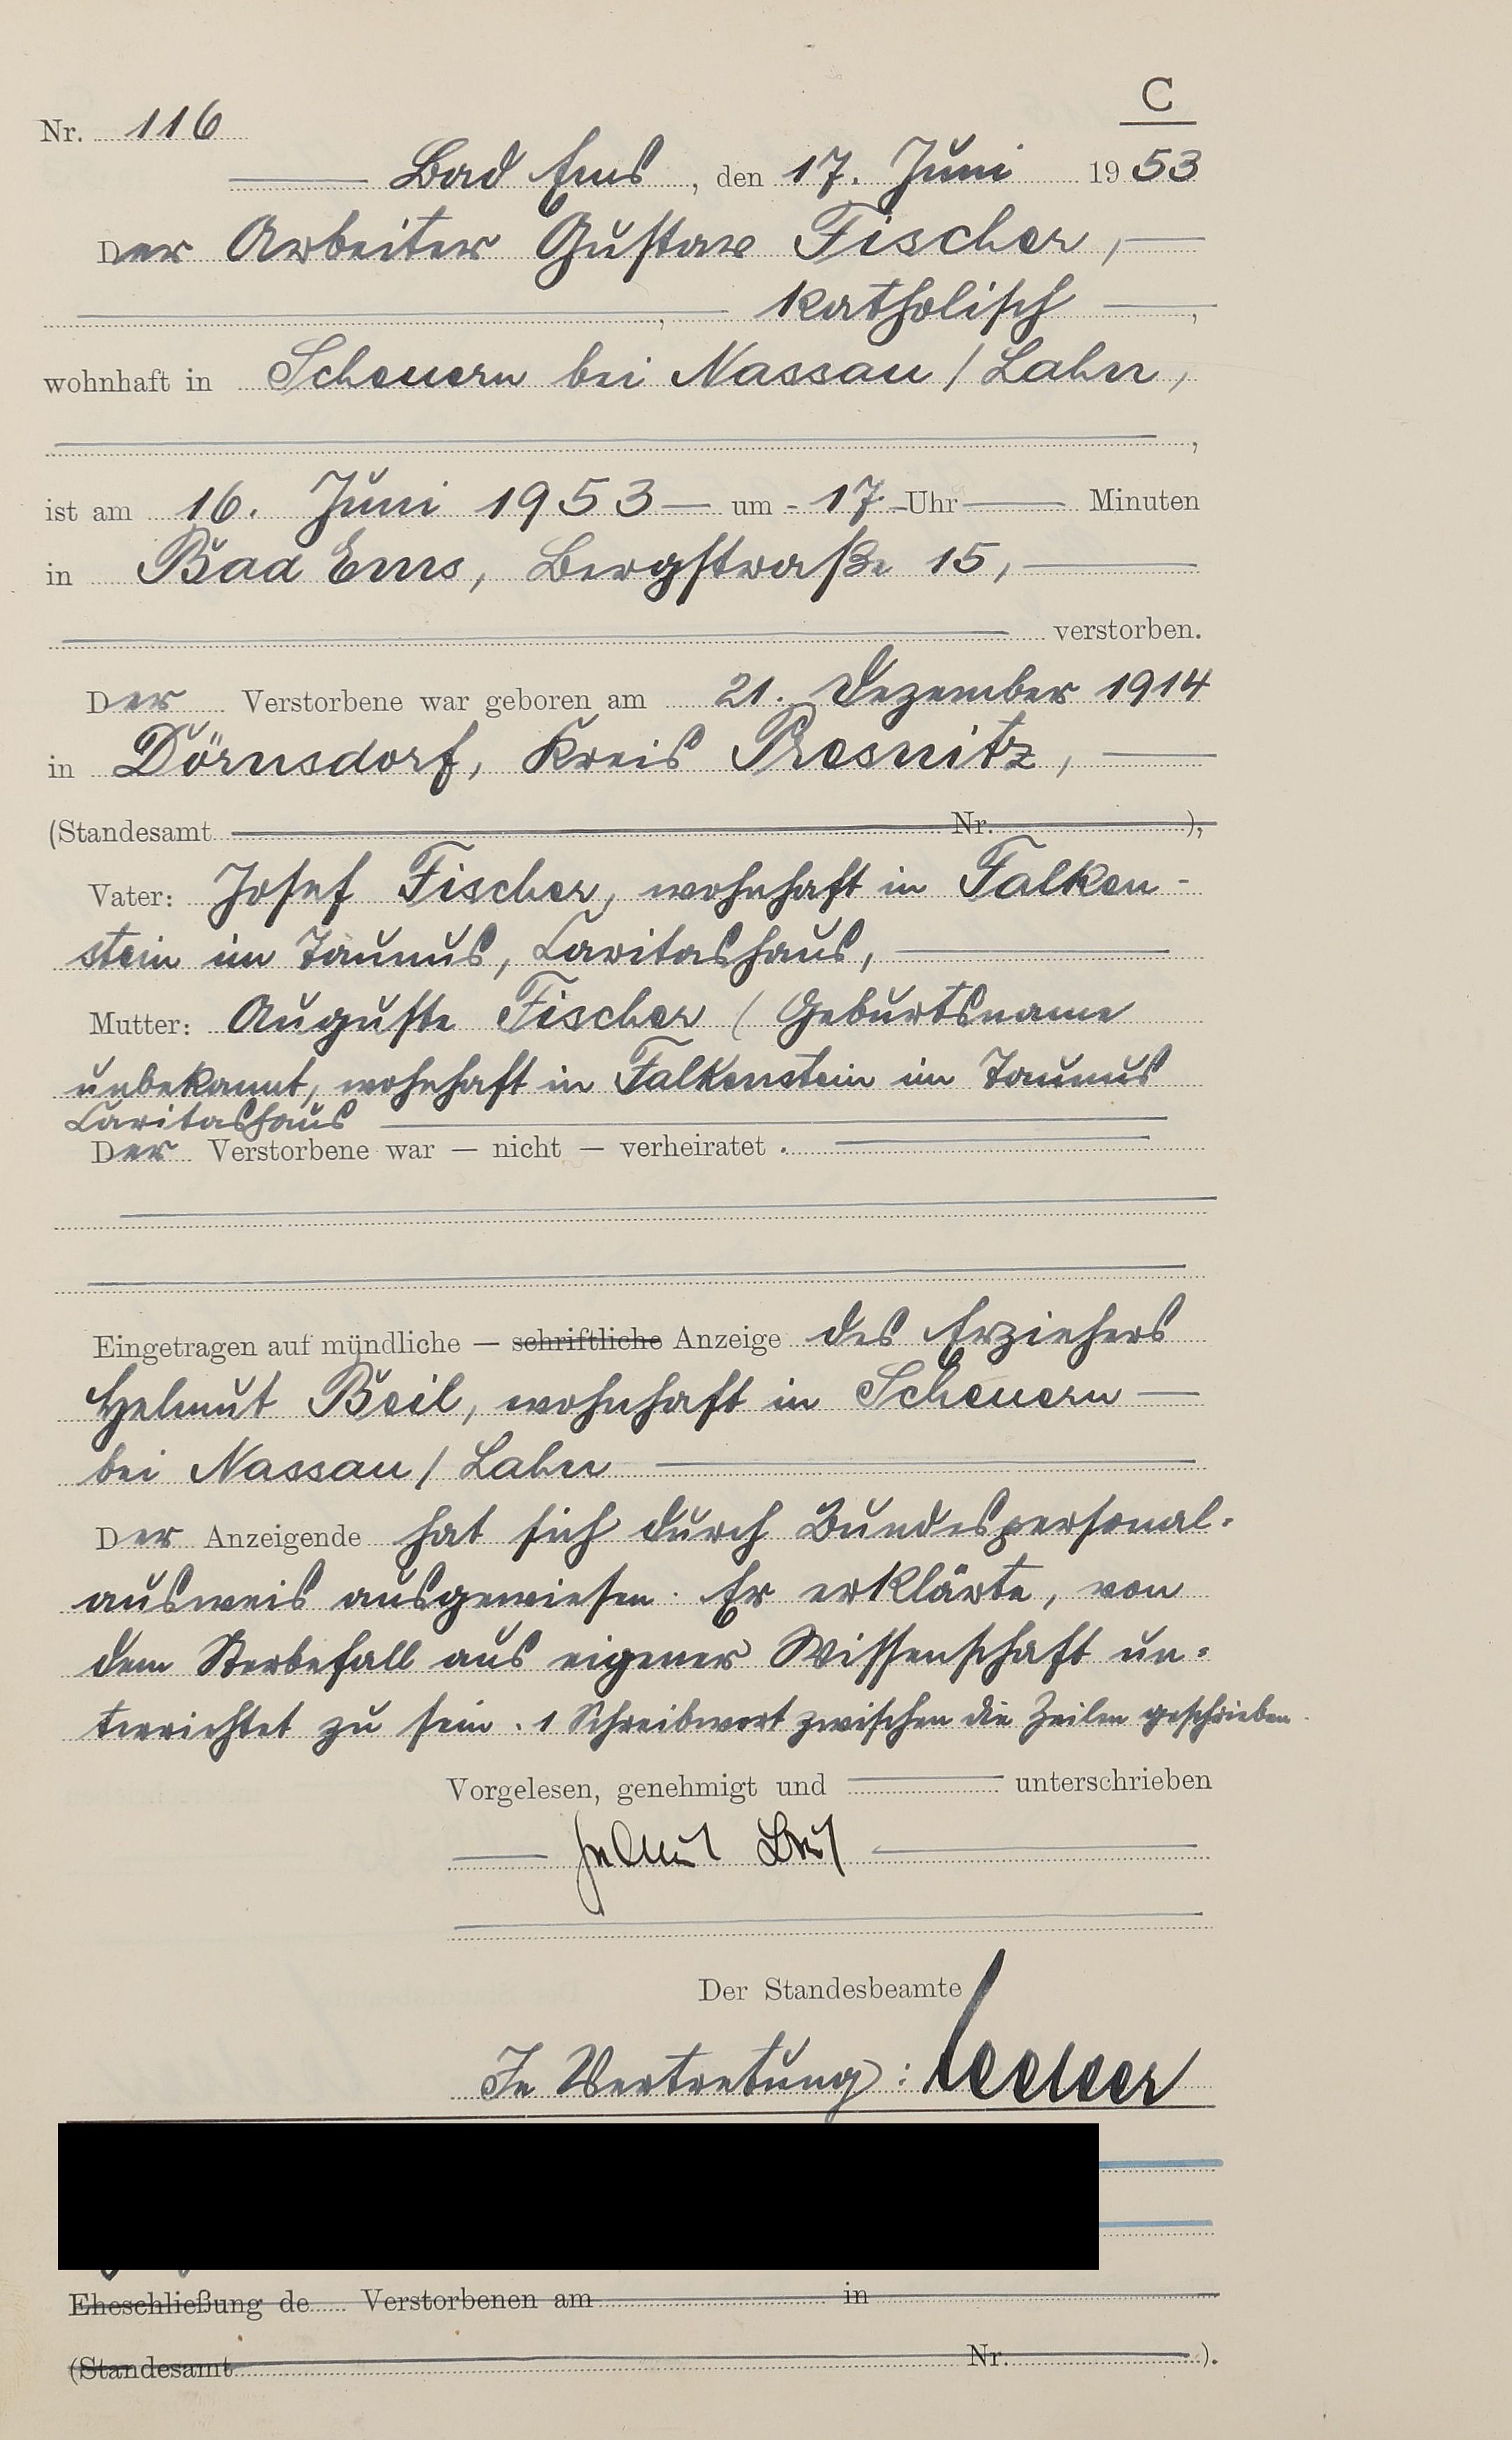 C
Nr. 116
Bad Ems, den 17. Juni 1953
Der Arbeiter Gustav Fischer,
, katholisch,
wohnhaft in Scheuern bei Nassau / Lahn,
,
ist am 16. Juni 1953 um 17 Uhr Minuten
in Bad Ems, Bergstraße 15,
verstorben.
Der Verstorbene war geboren am 21. Dezember 1914
in Dörnsdorf, Kreis Presnitz,
(Standesamt Nr. ),
Vater: Josef Fischer, wohnhaft in Falken-
stein im Taunus, Caritashaus,
Mutter: Auguste Fischer (Geburtsname
unbekannt, wohnhaft in Falkenstein im Taunus
Caritashaus
Der Verstorbene war — nicht — verheiratet.
Eingetragen auf mündliche — schriftliche Anzeige des Erziehers
Helmut Beil, wohnhaft in Scheuern
bei Nassau / Lahn
Der Anzeigende hat sich durch Bundespersonal-
ausweis ausgewiesen. Er erklärte, von
dem Sterbefall aus eigener Wissenschaft un-
terrichtet zu sein. 1 Schreibwort zwischen die Zeilen geschrieben.
Vorgelesen, genehmigt und unterschrieben
Helmut Beil
Der Standesbeamte
In Vertretung:
Eheschließung de Verstorbenen am in
(Standesamt Nr. ).